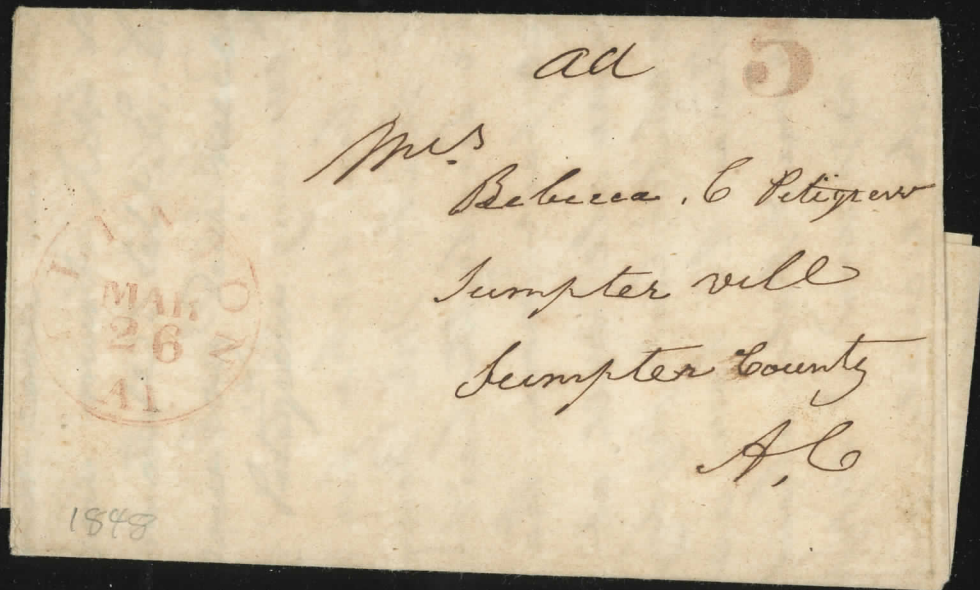 ad
5
Mrs.
Rebecca . C Petigrew
Sumpter vill
Sumpter County
A, C
MAR
26
AL.
1848